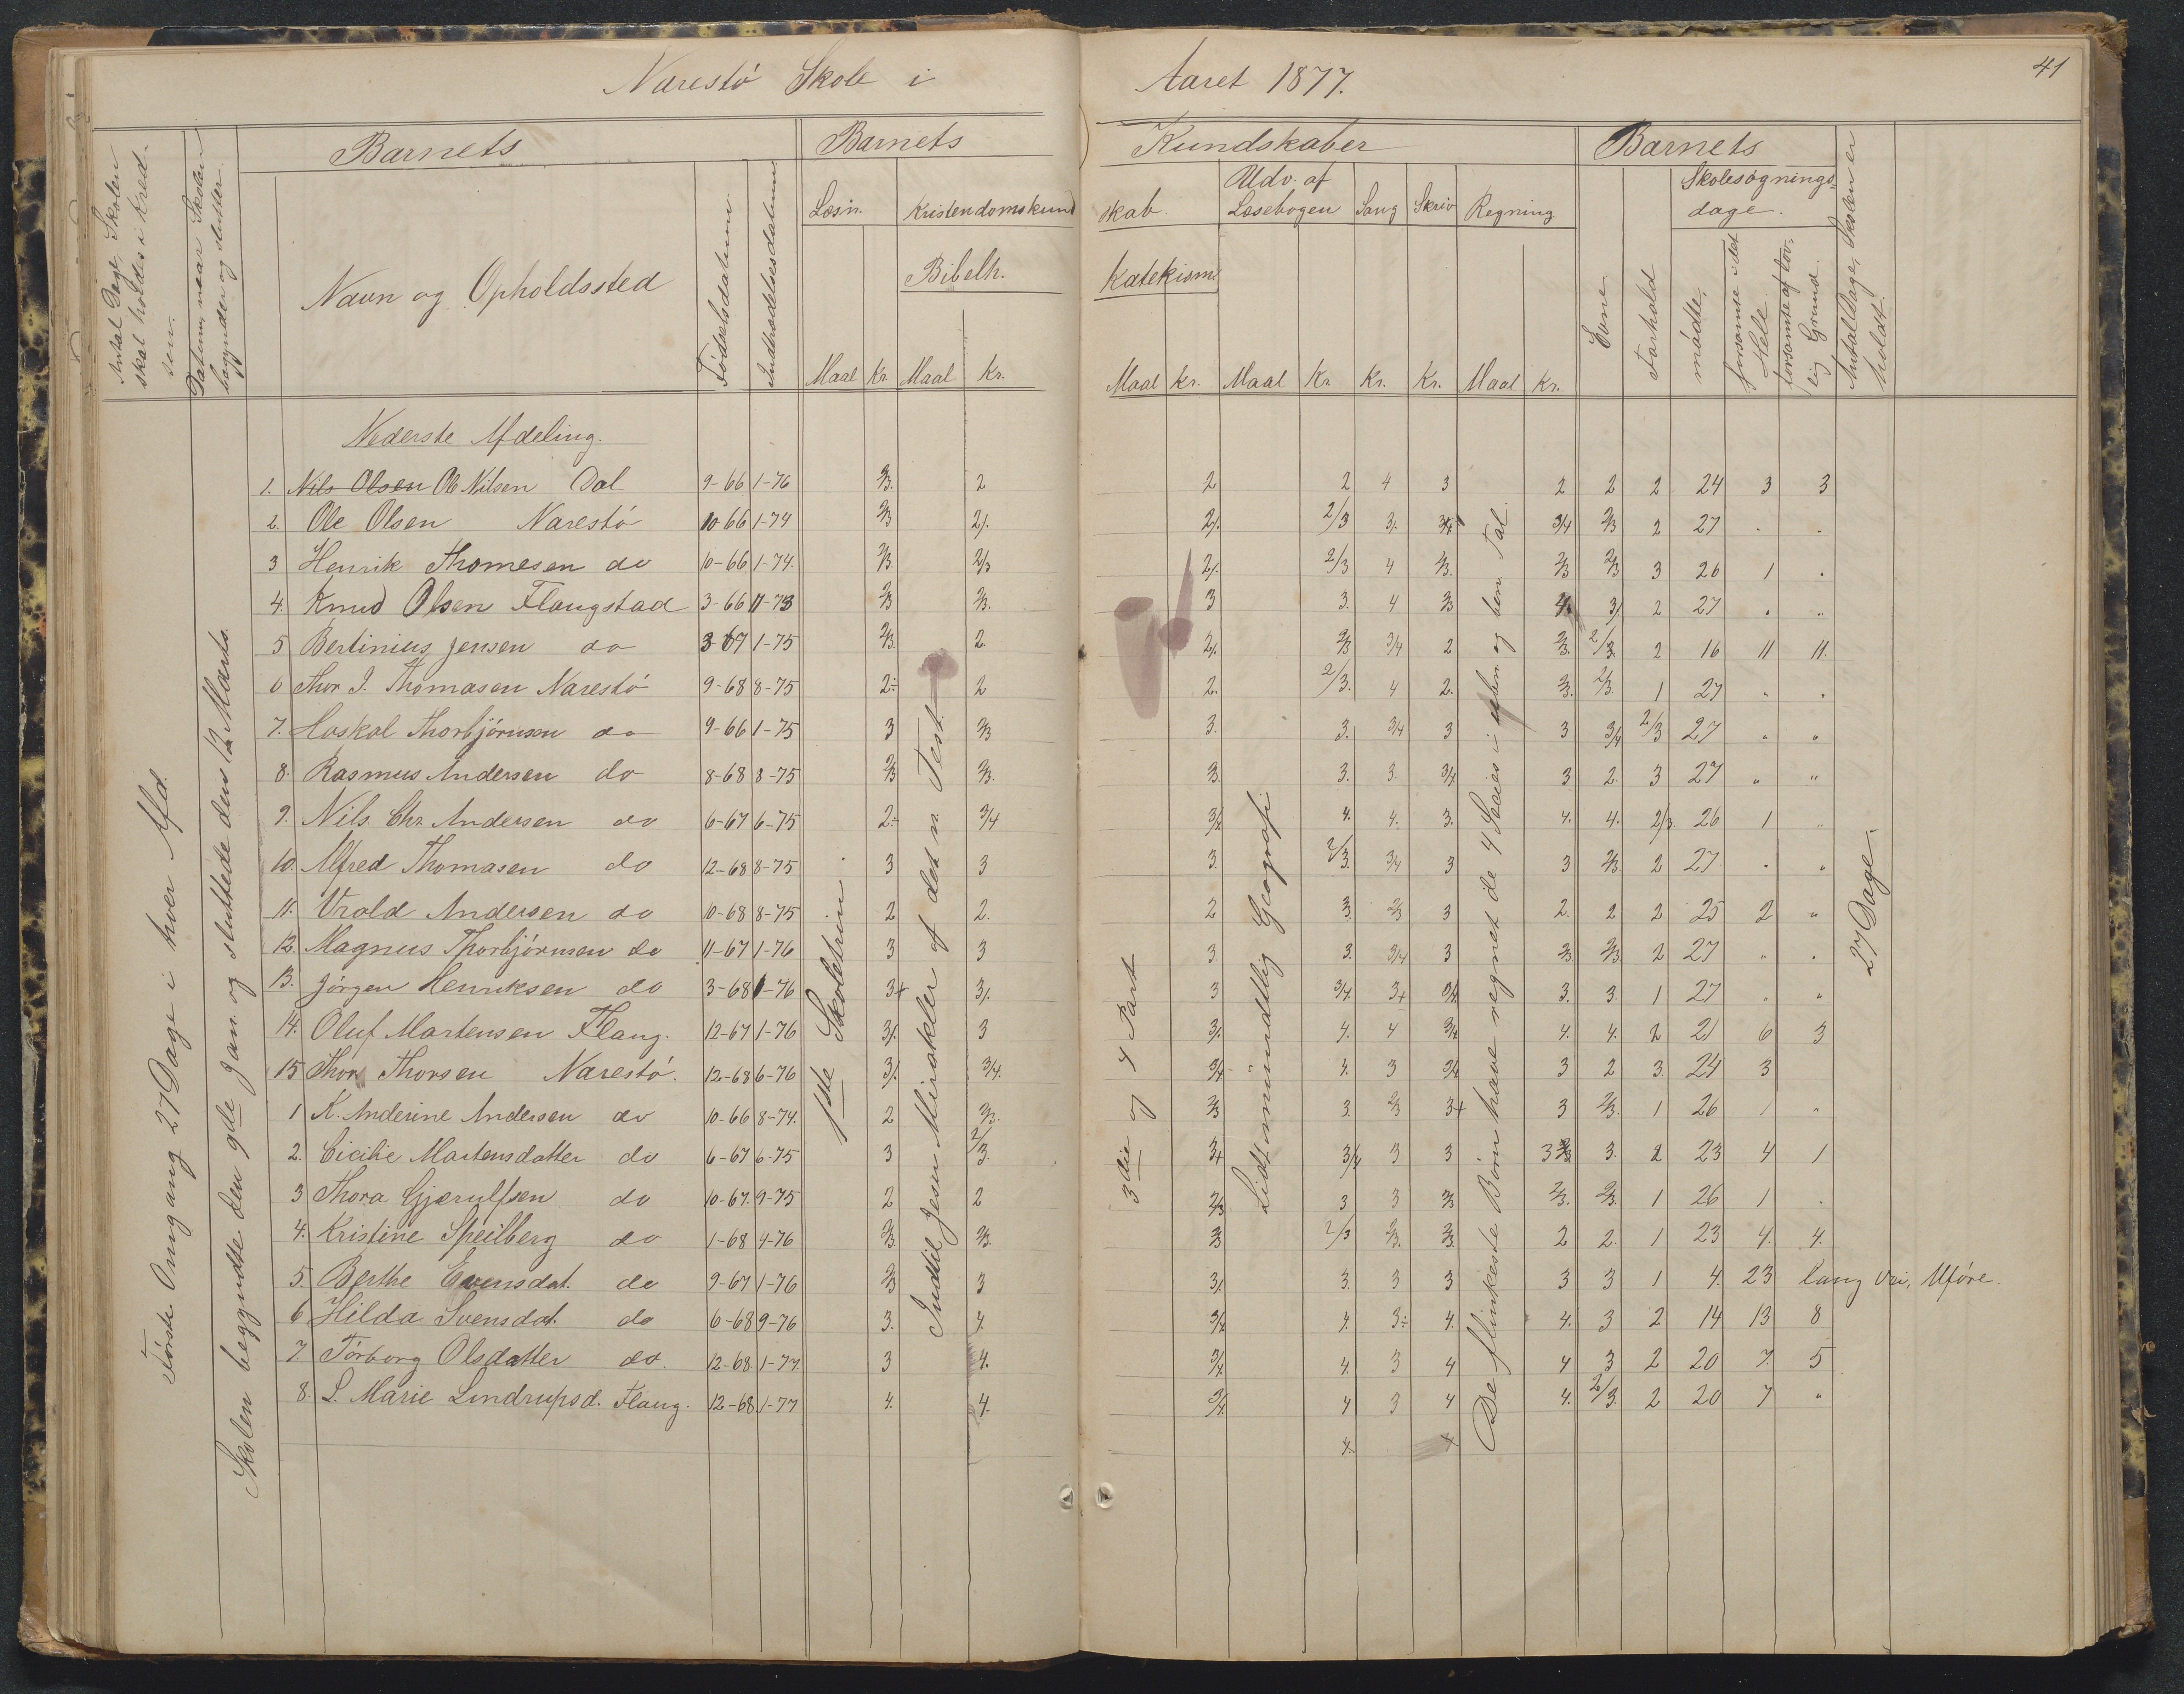 Narestö Skole i Aaret 1877.
41
Antal Dage, Skolen skal holdes i Kredsen.
Datum, naar Skolen begynder og slutter.
Barnets
Navn og Opholdssted
Födselsdatum
Indtrædelsesdatum
Barnets Kundskaber
Læsn.
Kristendomskundskab.
Bibelh.
Katekism.
Udv. af Læsebogen
Sang
Skriv
Regning
Maal Kr. Maal Kr. Maal Kr. Maal Kr Kr. Kr. Maal Kr.
Barnets
Evne
Forhold
Skolesøgningsdage.
mödte.
forsömte i det Hele.
forsömte af lovlig Grund.
Antal Dage, Skolen er holdt.
Förste Omgang 27 Dage i hver Afd.
Skolen begyndte den 9de Jan. og sluttede den 12 Marts.
1ste Skoletrin.
Indtil Jesu Mirakler af det n. Test.
3die og 4 Part
Lidt mundtlig Geografi
De flinkeste Börn have regnet de 4 Species i uben. og ben. Tal
27 Dage.
Nederste Afdeling.
1. Nils Olsen Ole Nilsen Dal 9-66 1-76 2/3. 2 2 2 4 3 2 2 2 24 3 3
2. Ole Olsen Narestö 10-66 1-74 2/3 2/. 2/. 2/3 3/. 3/4 3/4 2/3 2 27 . .
3 Henrik Thomesen do 10-66 1-74. 2/3. 2/3 2/. 2/3 4 2/3. 2/3 2/3 3 26 1 .
4. Knud Olsen Flangstad 3-66 11-73 2/3 2/3. 3 3. 4 2/3 4. 3/ 2 27 " "
5 Bertinius Jensen do 3 67 1-75 2/3. 2. 2/. 2/3 3/4 2 2/3. 2/3. 2 16 11 11.
6 Thor J. Thomasen Narestö 9-68 8-75 2÷ 2 2. 2/3. 4 2. 2/3. 2/3. 1 27 " "
7. Haskal Thorbjörnsen do 9-66 1-75 3 2/3 3. 3. 3/4 3 3 3/4 2/3 27 " "
8. Rasmus Andersen do 8-68 8-75 2/3 2/3. 2/3. 3. 3. 3/4. 3 2. 3 27 " "
9. Nils Chr. Andersen do 6-67 6-75 2÷ 3/4 3/4 4. 4. 3. 4. 4. 2/3. 26 1 "
10. Alfred Thomasen do 12-68 8-75 3 3 3. 2/3. 3/4 3 3 2/3. 2 27 " "
11. Vrold Andersen do 10-68 8-75 2 2. 2 3. 2/3 3 2. 2 2 25 2 "
12. Magnus Thorbjörnsen do 11-67 1-76 3 3 3. 3. 3/4 3 2/3. 2/3. 2 27 " "
13. Jörgen Henriksen do 3-68 1-76 3+ 3/. 3 3/4. 3+ 3/4 3. 3. 1 27 " "
14. Oluf Martensen Flang. 12-67 1-76 3/. 3 3/. 4. 4 3/4 4. 4. 2 21 6 3
15 Thor Thorsen Narestö. 12-68 6-76 3/. 3/4. 3/4 4. 3 3/4 3 2 3. 24 3
1 K. Anderine Andersen do 10-66 8-74. 2 2/3. 2/3 3. 2/3 3+ 3 2/3. 1 26 1 "
2. Cicilie Martensdatter do 6-67 6-75 3 2/3 3+ 3/4 3 3 3 3. 2 23 4 1
3 Thora Gjerulfsen do 10-67. 9-75 2 2 2/3 3 3 2/3 2/3. 2/3. 1 26 1 .
4. Kristine Speilberg do 1-68 4-76 2/3. 2/3. 2/3 2/3 2/3. 2/3. 2 2. 1 23 4. 4.
5. Berthe Evensdat. do 9-67 1-76 2/3 3 3/. 3. 3 3 3 3 1 4. 23 lang Vei, Uföre.
6 Hilda Svensdat. do 6-68 9-76 3. 4. 3/4 4. 3÷ 4. 4. 3 2 14 13 8
7. Törborg Olsdatter do. 12-68. 1-77. 3 4. 3/4 4. 3 4 4 3 2 20 7. 5
8. L. Marie Lindrupsd. Flang. 12-68. 1-77 4. 4. 3/4. 4 3 4 4. 2/3. 2 20 7 "